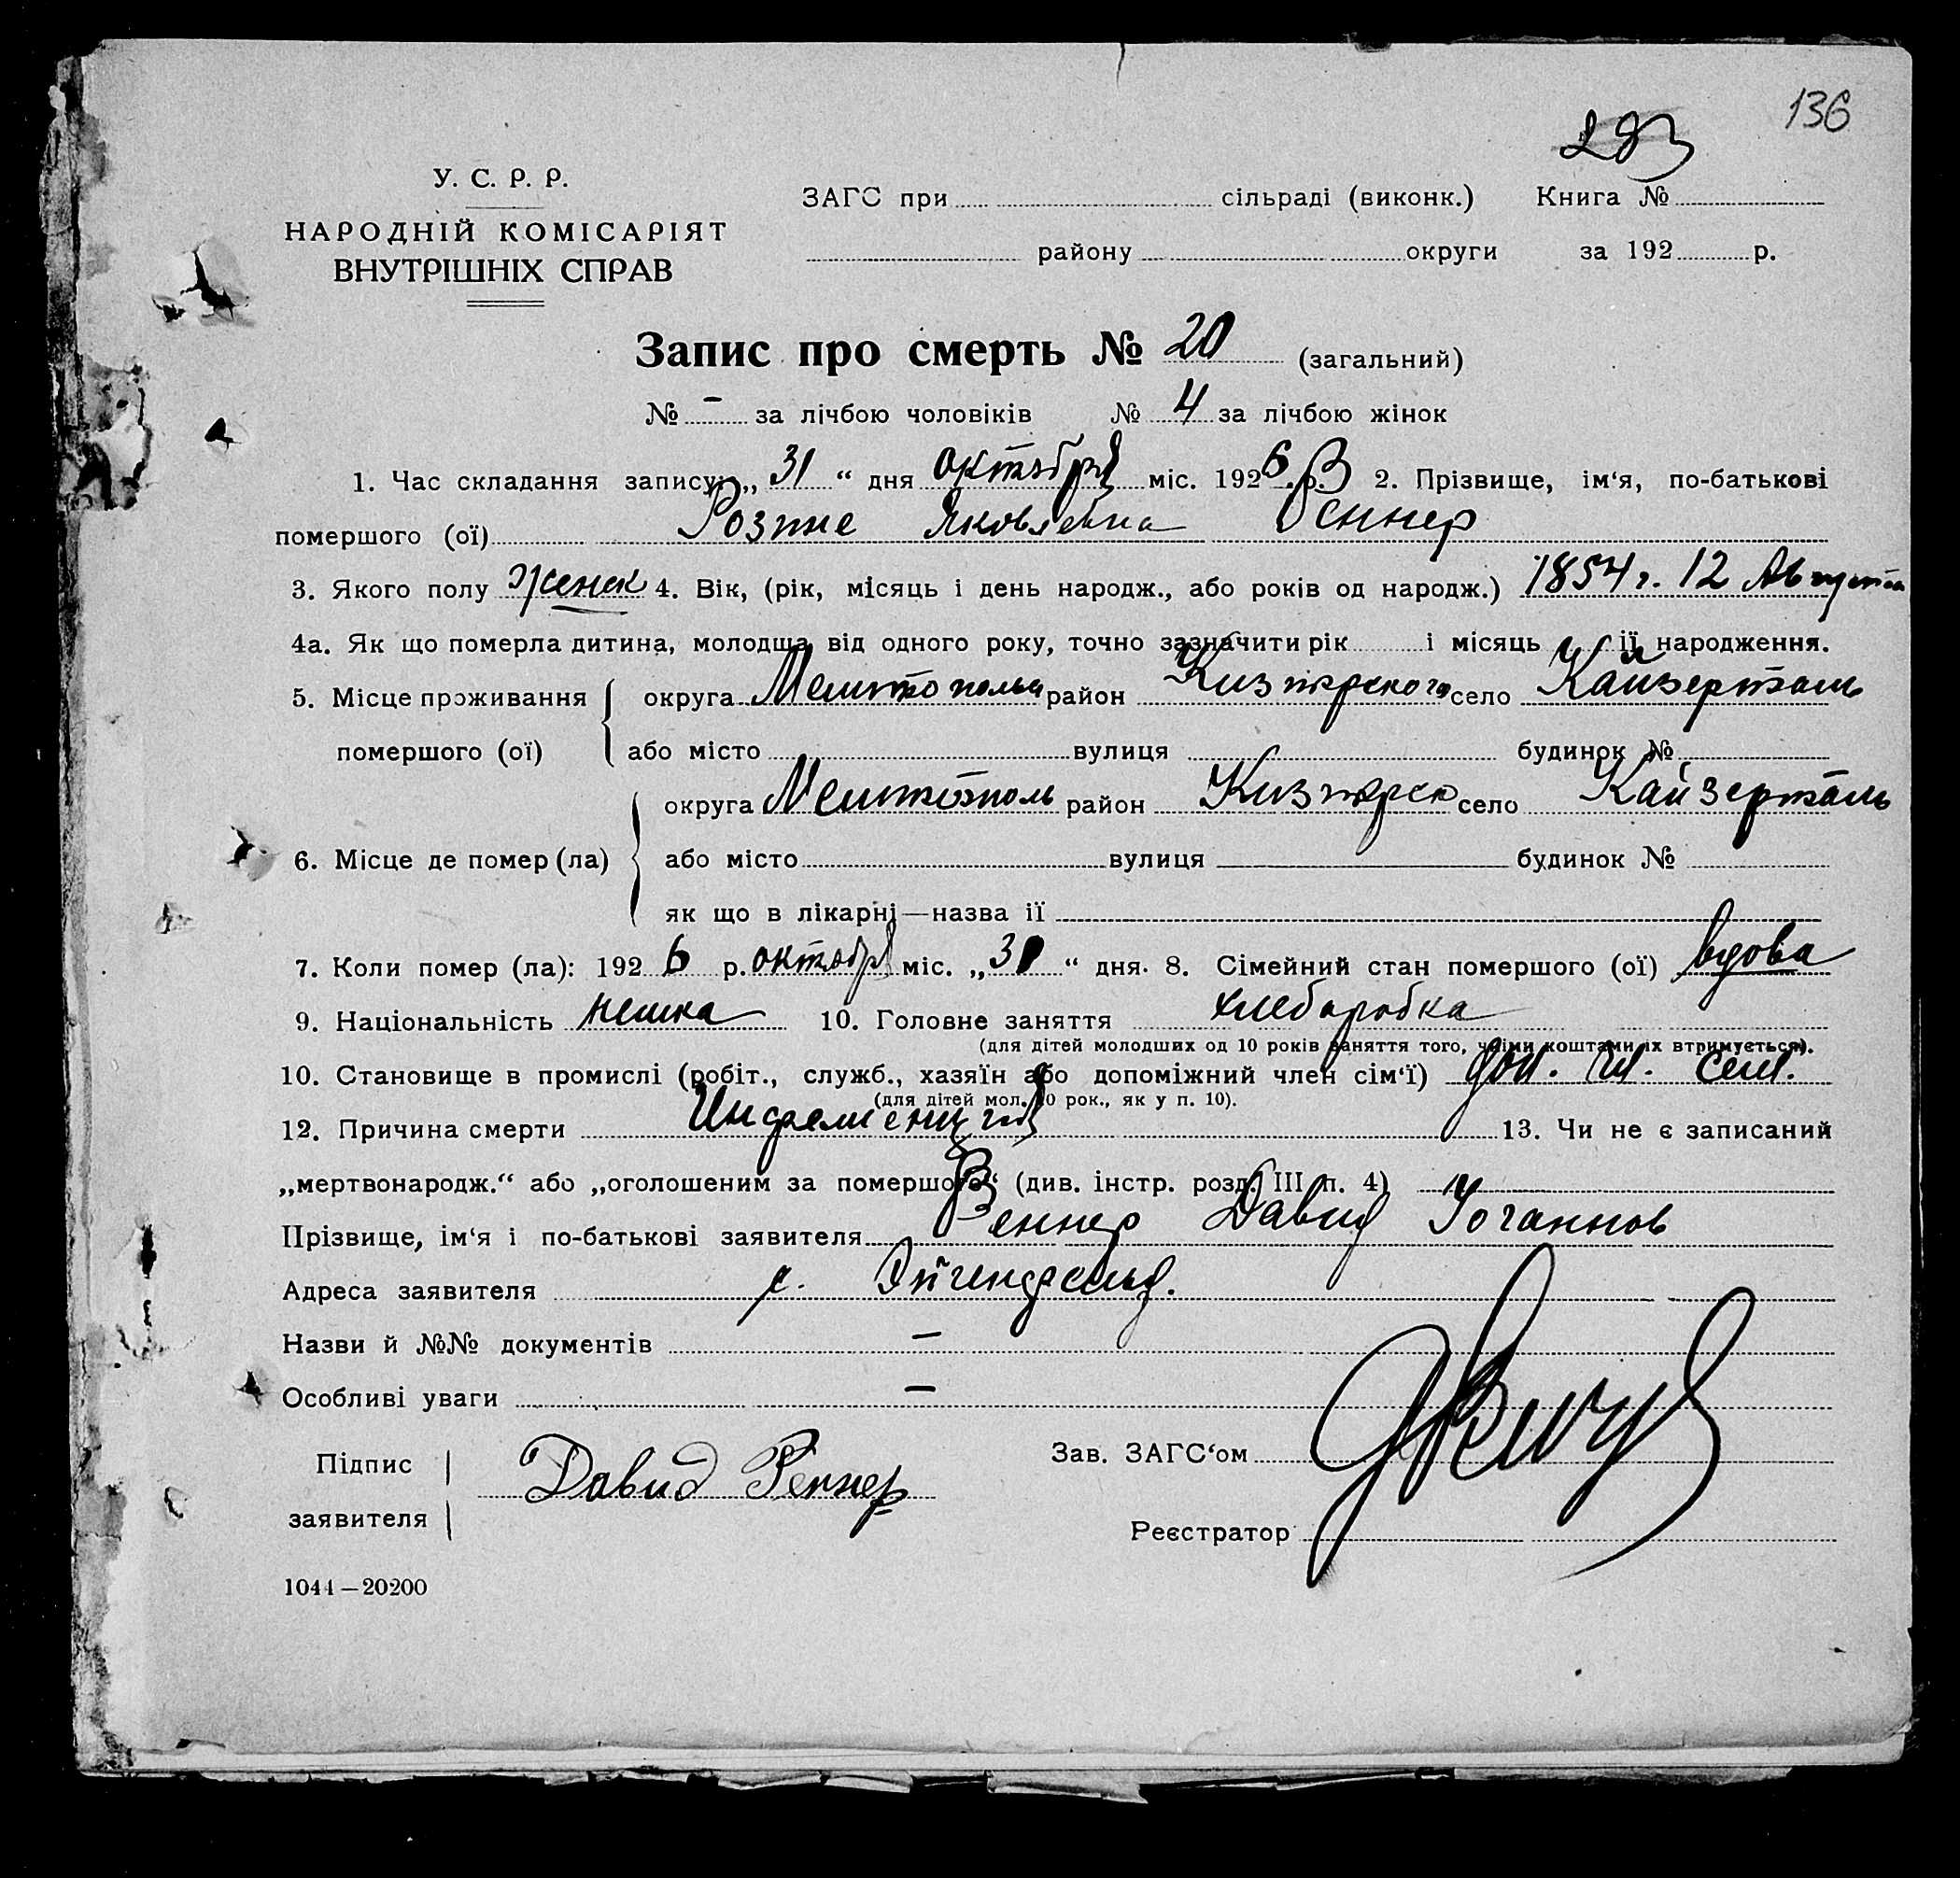 136
283
У. С. Р. Р.
НАРОДНІЙ КОМІСАРІЯТ
ВНУТРІШНІХ СПРАВ
ЗАГС при сільраді (виконк.) Книга №
району округи за 192 р.
Запис про смерть № 20 (загальний)
№ – за лічбою чоловіків № 4 за лічбою жінок
1. Час складання запису „ 31 “ дня октября міс. 1926 р. 2. Прізвище, ім‘я, по-батькові
помершого (ої) Яковлевна Реннер
3. Якого полу женск 4. Вік, (рік, місяць і день народж., або років од народж.) 1854 г. 12 Августа
4а. Як що померла дитина, молодша від одного року, точно зазначити рік і місяць ії народження.
5. Місце проживання округа район село Кайзерталь
помершого (ої) або місто вулиця будинок №
округа район село Кайзерталь
6. Місце де помер (ла) або місто вулиця будинок №
як що в лікарні—назва ії
7. Коли помер (ла): 192 6 р. октября міс. „ “ дня. 8. Сімейний стан помершого (ої) вдова
9. Національність немка 10. Головне заняття хлеборобка
(для дітей молодших од 10 років заняття того, чиїми коштами їх втримується).
10. Становище в промислі (робіт., служб., хазяїн або допоміжний член сім‘ї) доп. чл. сем.
(для дітей мол. 10 рок., як у п. 10).
12. Причина смерти 13. Чи не є записаний
„мертвонародж.“ або „оголошеним за помершого“ (див. інстр. розд. III п. 4)
Прізвище, ім‘я і по-батькові заявителя Реннер Давид Иоганнов
Адреса заявителя с.
Назви й №№ документів –
Особливі уваги –
Підпис
заявителя
Давид Реннер
Зав. ЗАГС‘ом
Реєстратор
1044—20200